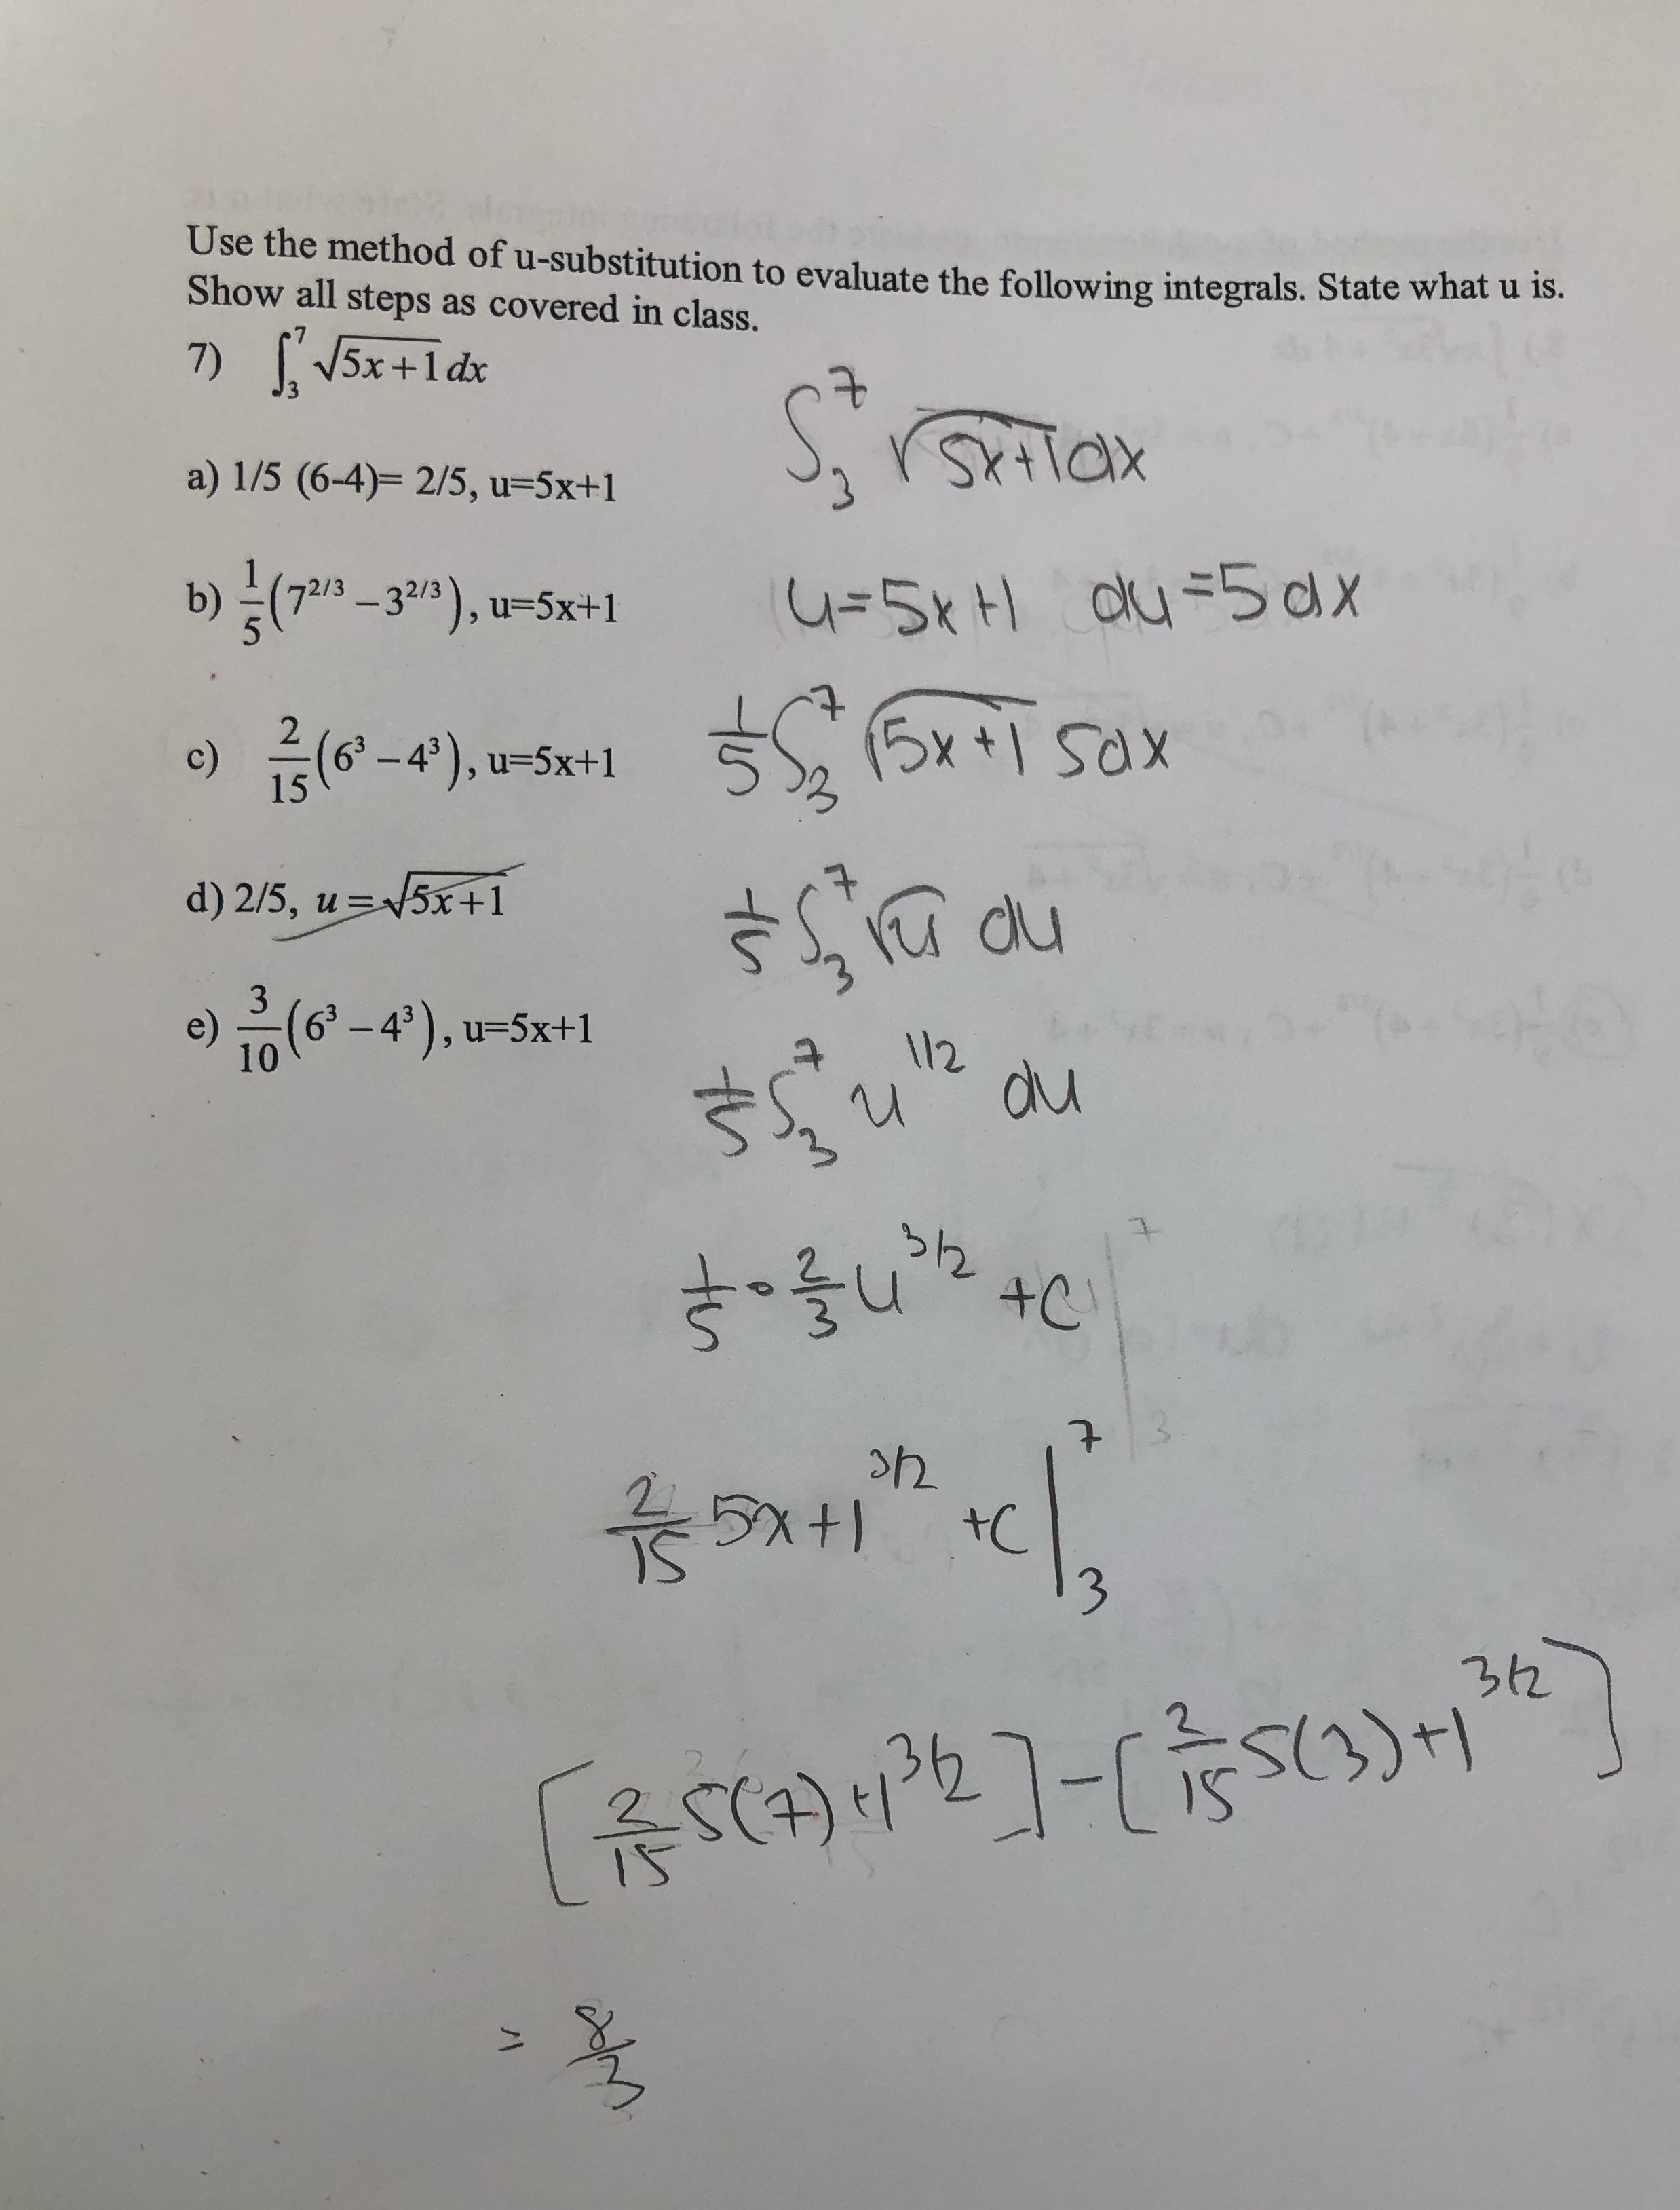 Use the method of u-substitution to evaluate the following integrals. State what u is.
Show all steps as covered in class.
7) ∫₃⁷ √(5x+1) dx
a) 1/5 (6-4)= 2/5, u=5x+1
b) 1/5 (7^2/3 – 3^2/3), u=5x+1
c) 2/15 (6³ – 4³), u=5x+1
d) 2/5, u = √(5x+1)
e) 3/10 (6³ – 4³), u=5x+1
∫₃⁷ √(5x+1) dx
u=5x+1 du=5dx
1/5 ∫₃⁷ √(5x+1) 5dx
1/5 ∫₃⁷ √u du
1/5 ∫₃⁷ u^1/2 du
1/5 · 2/3 u^3/2 +C |₃⁷
2/15 5x+1^3/2 +C |₃⁷
[2/15 5(7)+1^3/2] – [2/15 5(3)+1^3/2]
= 8/3